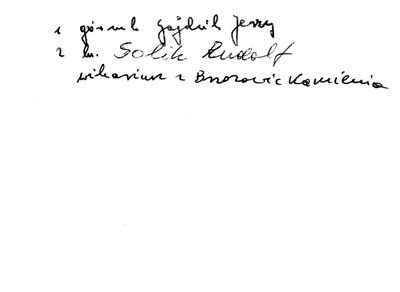 1 górnik Gajdzik Jerzy
2 ks. Solik Rudolf
wikariusz z Brzozowic Kamienia